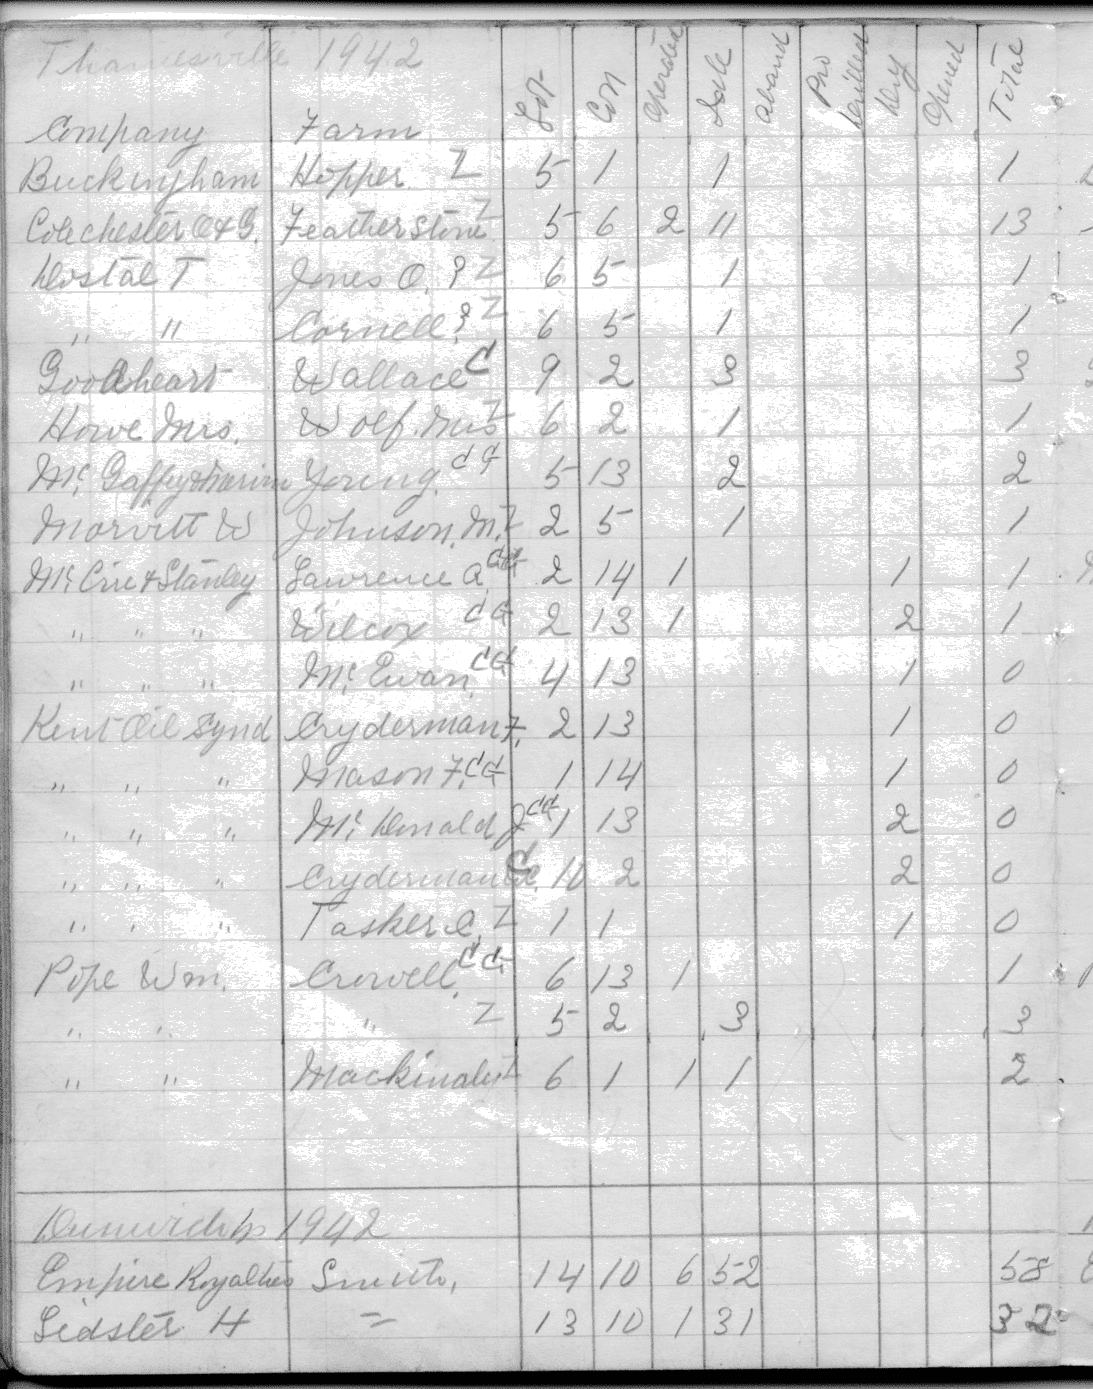 Thamesville 1942
Company Farm Lot Con Operated Idle Aband Pro Drilled Dry Opened Total
Buckingham Hopper Z 5 1 1 1
Colechester O & G. Featherstone Z 5 6 2 11 13
Dostal T Jones O. ? Z 6 5 1 1
" " Cornell ? Z 6 5 1 1
Goodheart Wallace C 9 2 3 3
Howe Mrs. Wolf. Mrs Z 6 2 1 1
Mc Gaffey & Young. CG 5 13 2 2
Morvitt W Johnson. M. Z 2 5 1 1
Mc Cire & Stanley Lawrence A CG 2 14 1 1 1
" " " Wilcox CG 2 13 1 2 1
" " " Mc Ewan. CG 4 13 1 0
Kent Oil Synd Cryderman F. 2 13 1 0
" " " Mason F. CG 1 14 1 0
" " " Mc Donald J CG 1 13 2 0
" " " Cryderman C 10 2 2 0
" " " Tasker C. Z 1 1 1 0
Pope Wm. Crowell. CG 6 13 1 1
" " " Z 5 2 3 3
" " Mackinaley Z 6 1 1 1 2
Dunwich tp 1942
Empire Royalties Smith, 14 10 6 52 58
Lidster H = 13 10 1 31 32